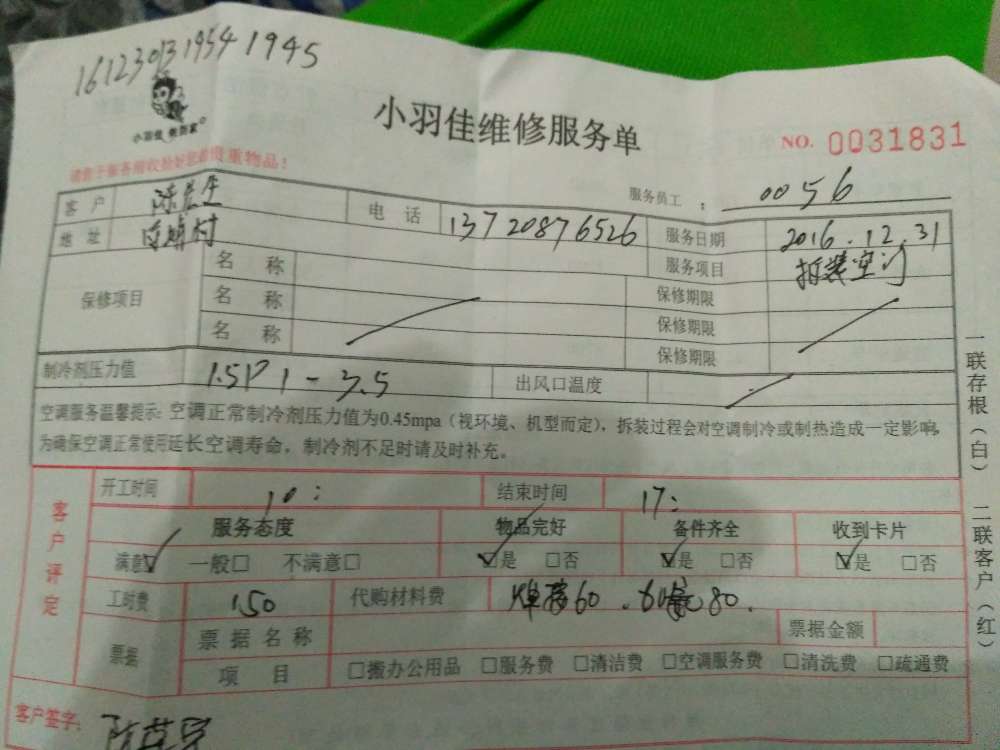 1612303119541945
小羽佳 做到家
小羽佳维修服务单
NO. 0031831
贵重物品！
服务员工： 0056
客户 陈先生 电话 13720876526 服务日期 2016.12.31
地址 村 服务项目 拆装空门
保修项目 名称 保修期限
名称 保修期限
名称 保修期限
制冷剂压力值 1.5P 1-3.5 出风口温度
空调服务温馨提示：空调正常制冷剂压力值为0.45mpa（视环境、机型而定），拆装过程会对空调制冷或制热造成一定影响，
为确保空调正常使用延长空调寿命，制冷剂不足时请及时补充。
客户评定
开工时间 10： 结束时间 17：
服务态度 物品完好 备件齐全 收到卡片
满意☑ 一般□ 不满意□ ☑是 □否 ☑是 □否 ☑是 □否
工时费 150 代购材料费 60 . 80.
票据 票据名称 票据金额
项目 □搬办公用品 □服务费 □清洁费 □空调服务费 □清洗费 □疏通费
客户签字：
一联存根（白） 二联客户（红）